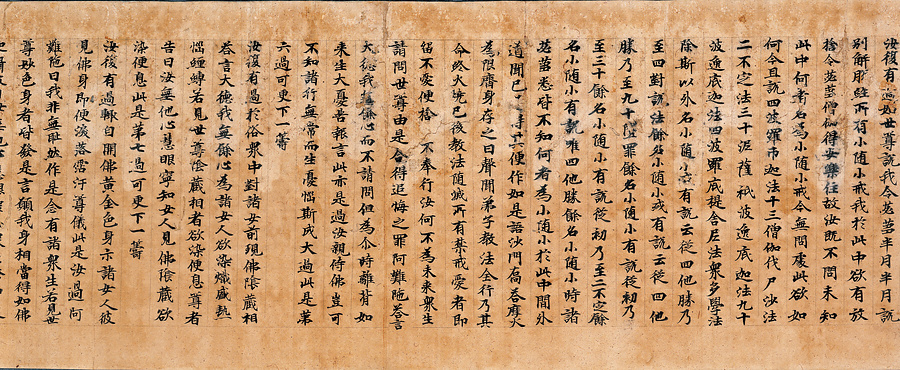 汝復有過世尊說我令苾芻半月半月說
別解脫經所有小隨小戒我於此中欲有放
捨令苾芻僧伽得安樂住故汝既不問未知
此中何者名為小隨小戒今無問處此欲如
何今且說四波羅市迦法十三僧伽伐尸沙法
二不定法三十泥薩祇波逸底迦法九十
波逸底迦法四波羅底提舍尼法眾多學法
除斯以外名小隨小有說云從四他勝乃
至四對說法餘名小隨小戒有說云從四他
勝乃至九十墮罪餘名小隨小有說從初乃
至三十餘名小隨小有說從初乃至二不定餘
名小隨小有說唯四他勝餘名小隨小時諸
苾芻悉咸不知何者為小隨小於此中間外
道聞已其便作如是語沙門喬答摩大
為限齊身存之日聲聞弟子教法全行乃其
命終火燒已後教法隨滅所有禁戒愛者即
留不愛便捨不奉行汝何不為未來眾生
請問世尊由是合得追悔之罪阿難陀答言
大德我無餘心而不請問但為尒時離背如
來生大憂苦報言此亦是過汝親侍佛豈可
不知諸行無常而生憂惱斯成大過此是第
六過可更下一籌
汝復有過於俗眾中對諸女前現佛陰藏相
答言大德我無餘心為諸女人欲染熾盛熱
惱纏縛若見世尊陰藏相者欲染便息尊者
告曰汝無他心慧眼寧知女人見佛陰藏欲
染便息此是第七過可更下一籌
汝復有過輒自開佛黃金色身示諸女人彼
見佛身即便淚落霑汙尊儀此是汝過阿
難陀曰我非無恥然作是念有諸眾生若見世
尊妙色身者咸發是言願我身相當得如佛